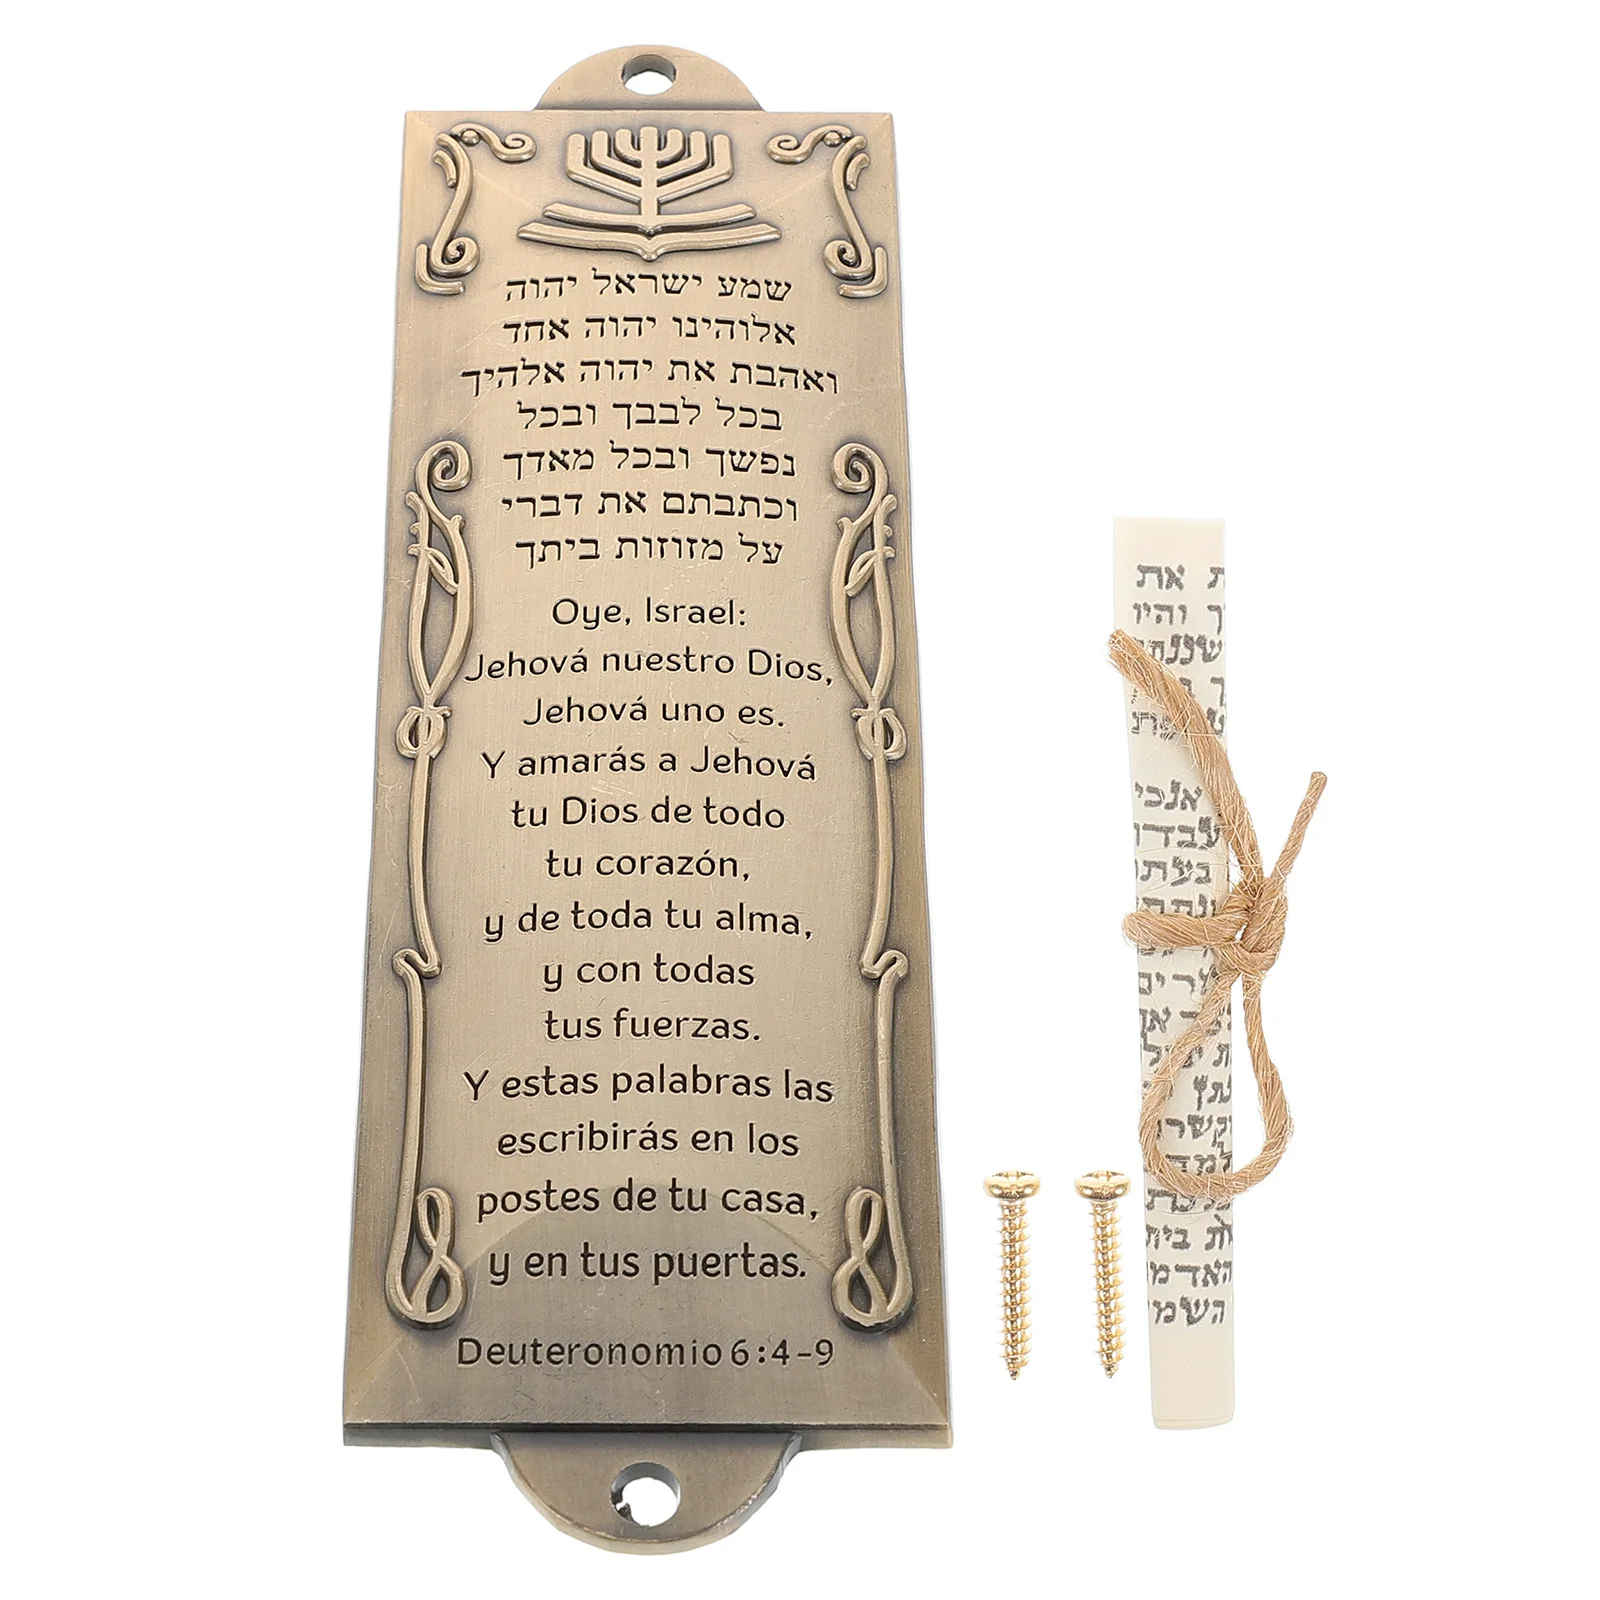 שמע ישראל יהוה
אלוהינו יהוה אחד
ואהבת את יהוה אלהיך
בכל לבבך ובכל
נפשך ובכל מאדך
וכתבתם את דברי
על מזוזות ביתך
Oye, Israel:
Jehová nuestro Dios,
Jehová uno es.
Y amarás a Jehová
tu Dios de todo
tu corazón,
y de toda tu alma,
y con todas
tus fuerzas.
Y estas palabras las
escribirás en los
postes de tu casa,
y en tus puertas.
Deuteronomio 6:4-9
את
והיו
אנכי